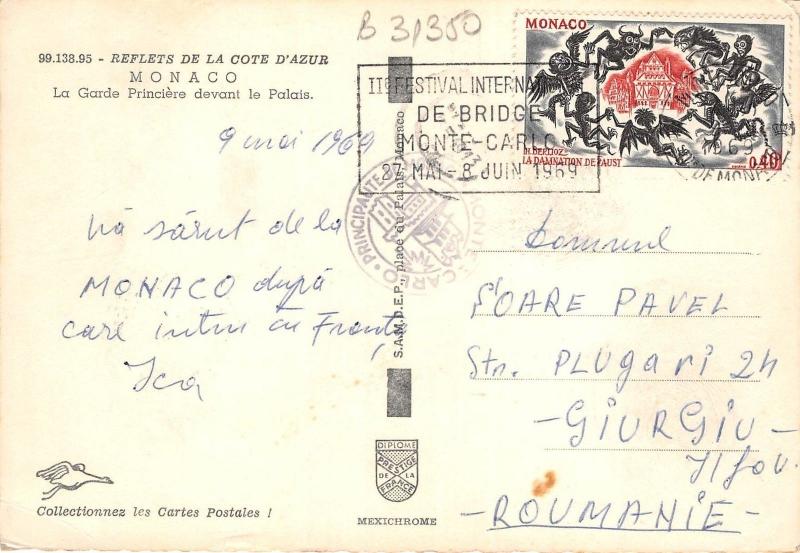 B 31350
99.138.95 - REFLETS DE LA COTE D'AZUR
MONACO
La Garde Princière devant le Palais.
9 mai 1969
Vă sărut de la
MONACO după
care intru în Franța
Ica
Collectionnez les Cartes Postales !
S.A.M.D.E.P., place du Palais, Monaco
DIPLOME
PRESTIGE
DE LA
FRANCE
MEXICHROME
IIe FESTIVAL INTERNAT
DE BRIDGE
MONTE-CARLO
27 MAI-8 JUIN 1969
PRINCIPAUTE
MONTE-CARLO
MONACO
H. BERLIOZ
LA DAMNATION DE FAUST
0,40
1969
Domnul
SOARE PAVEL
Str. PLUGARI 24
-GIURGIU-
Ilfov.
-ROUMANIE-